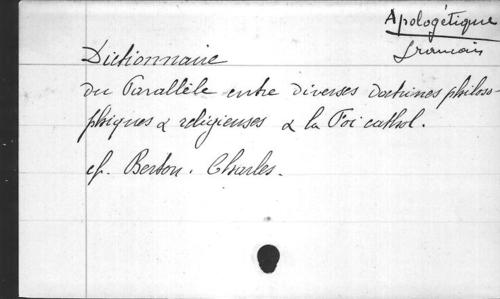 Apologétique
français
Dictionnaire
du Parallèle entre diverses doctrines philoso-
phiques & religieuses & la Foi cathol.
cf. Berton. Charles.